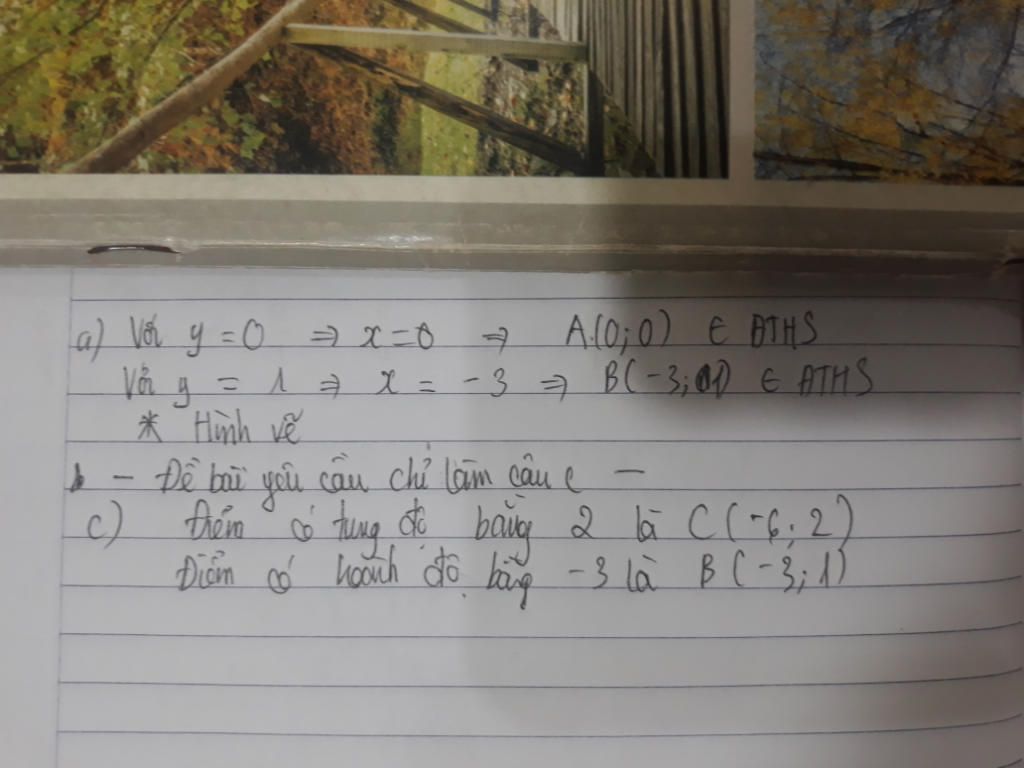 a) Với y = 0 ⇒ x = 0 ⇒ A(0; 0) ∈ ĐTHS
Với y = 1 ⇒ x = -3 ⇒ B(-3; 1) ∈ ĐTHS
* Hình vẽ
b - Đề bài yêu cầu chỉ làm câu c -
c) Điểm có tung độ bằng 2 là C(-6; 2)
Điểm có hoành độ bằng -3 là B(-3; 1)